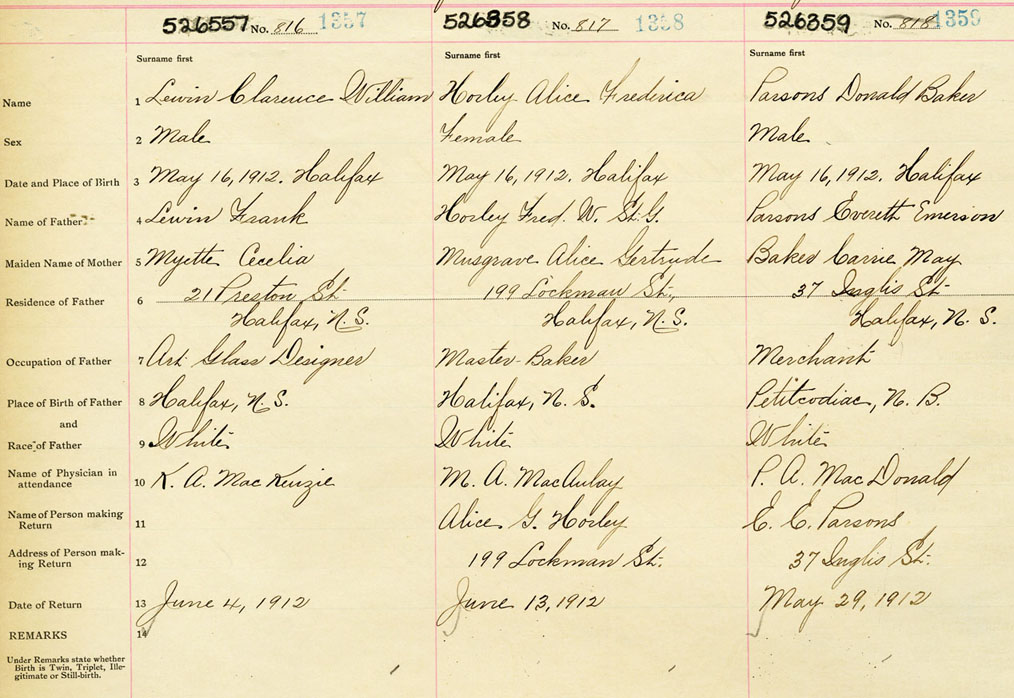 526557 No. 816 1357 526358 No. 817 1358 526359 No. 818 1359
Surname first Surname first Surname first
Name 1 Lewin Clarence William Horley Alice Frederica Parsons Donald Baker
Sex 2 Male Female Male
Date and Place of Birth 3 May 16, 1912. Halifax May 16, 1912. Halifax May 16, 1912. Halifax
Name of Father 4 Lewin Frank Horley Fred. W. St. G. Parsons Everett Emerson
Maiden Name of Mother 5 Myette Cecelia Musgrave Alice Gertrude Baker Carrie May
Residence of Father 6 21 Preston St. 199 Lockman St., 37 Inglis St.
Halifax, N.S. Halifax, N.S. Halifax, N.S.
Occupation of Father 7 Art Glass Designer Master Baker Merchant
Place of Birth of Father 8 Halifax, N.S. Halifax, N.S. Petitcodiac, N.B.
and
Race of Father 9 White White White
Name of Physician in
attendance 10 K. A. MacKenzie M. A. MacAulay P. A. MacDonald
Name of Person making
Return 11 Alice G. Horley E. E. Parsons
Address of Person mak-
ing Return 12 199 Lockman St. 37 Inglis St.
Date of Return 13 June 4, 1912 June 13, 1912 May 29, 1912
REMARKS 14
Under Remarks state whether
Birth is Twin, Triplet, Ille-
gitimate or Still-birth.